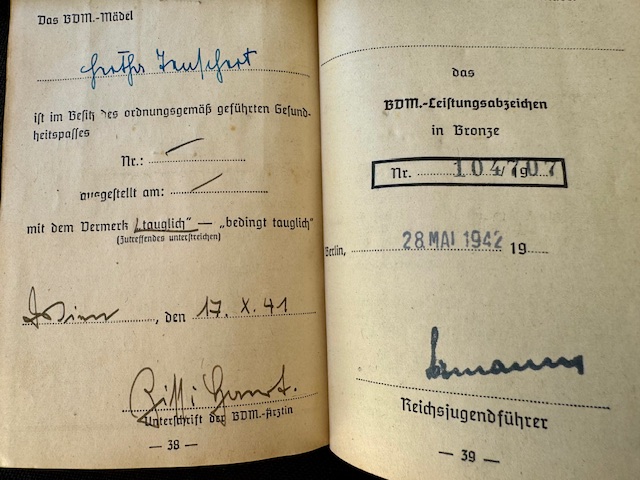 Das BDM.-Mädel
Hertha Teuschert
ist im Besitz des ordnungsgemäß geführten Gesund-
heitspasses
Nr.:
ausgestellt am:
mit dem Vermerk „tauglich“ — „bedingt tauglich“
(Zutreffendes unterstreichen)
Wien, den 17. X. 41
Unterschrift der BDM.-Ärztin
— 38 —
das
BDM.-Leistungsabzeichen
in Bronze
Nr. 104707 /19
Berlin, 28 MAI 1942 19
Axmann
Reichsjugendführer
— 39 —